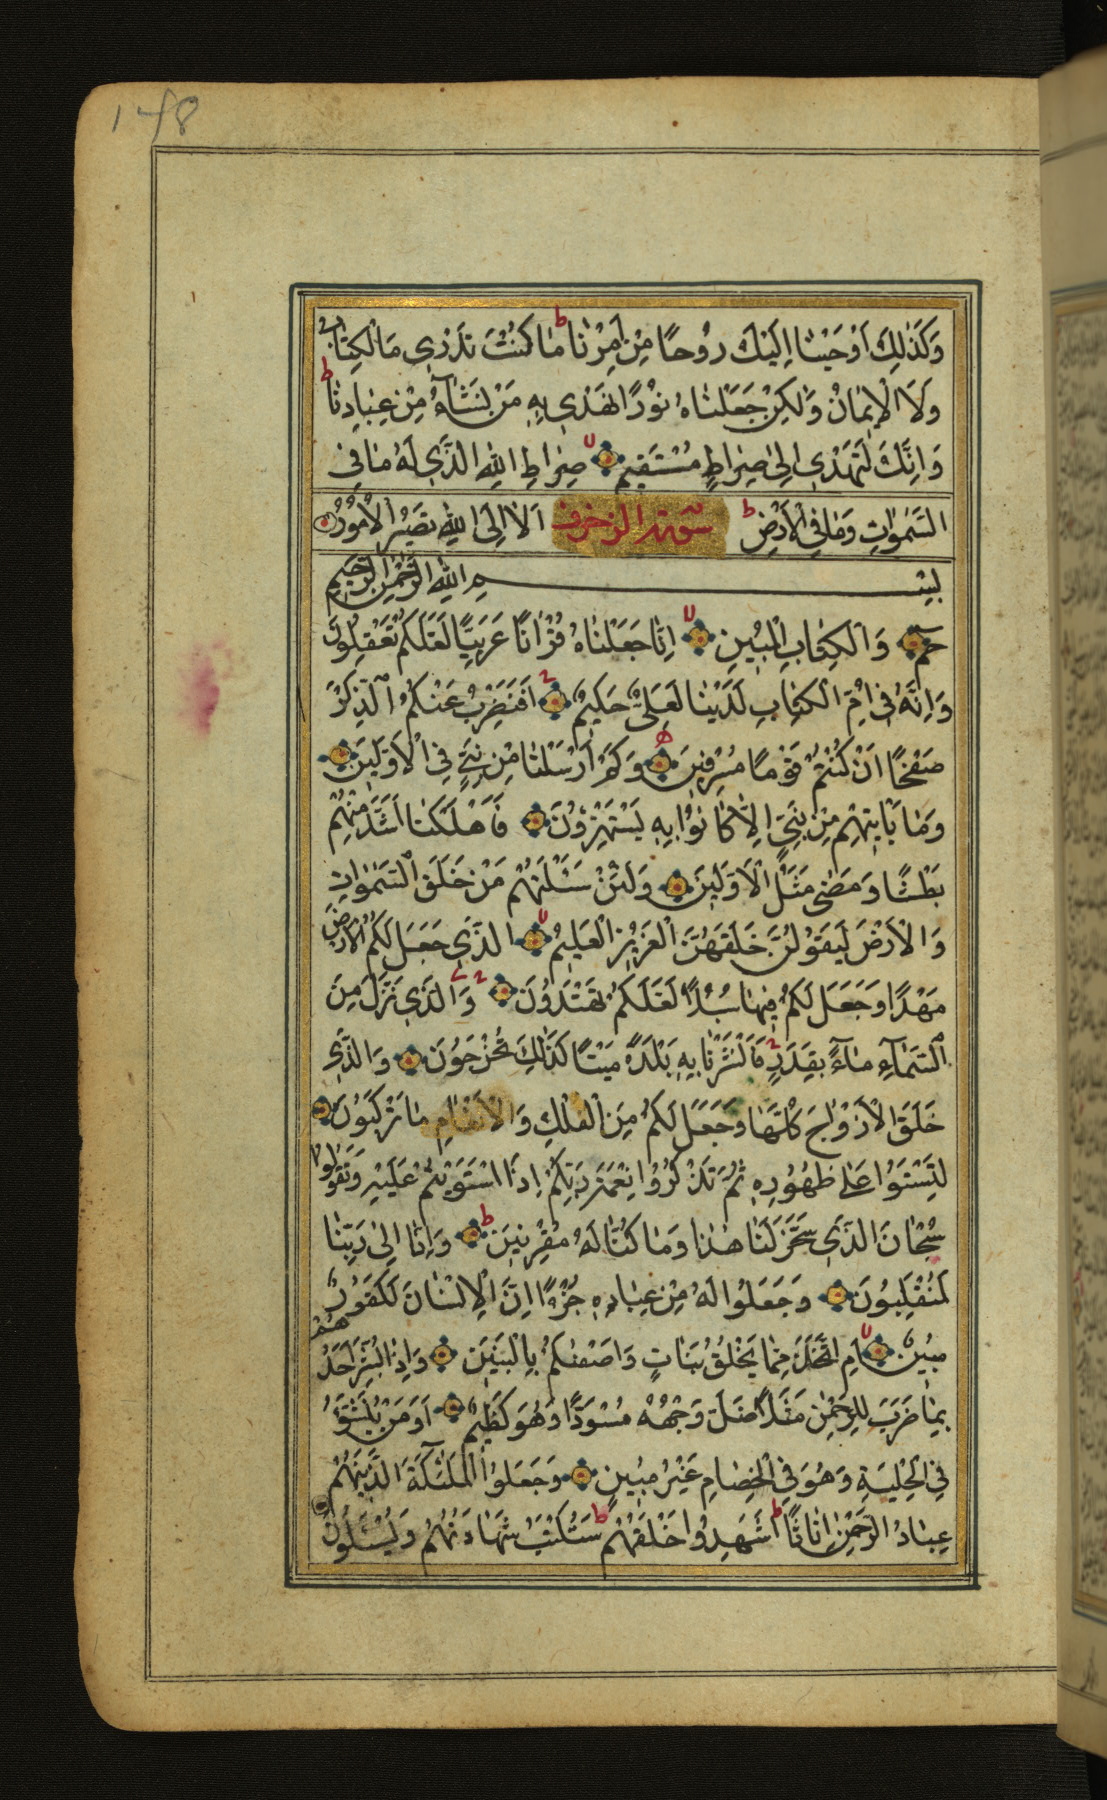 148
وَكَذٰلِكَ اَوْحَيْنٰا اِلَيْكَ رُوْحًا مِنْ اَمْرِنٰا ط مٰا كُنْتَ تَدْرٖى مَا الْكِتٰابُ
وَلَا الْاٖيمٰانُ وَلٰكِنْ جَعَلْنٰاهُ نُوْرًا نَهْدٖى بِهٖ مَنْ نَشٰآءُ مِنْ عِبٰادِنٰا ط
وَاِنَّكَ لَتَهْدٖى اِلٰى صِرٰاطٍ مُسْتَقٖيمٍ صِرٰاطِ اللّٰهِ الَّذٖى لَهُ مٰا فِى
السَّمٰوٰاتِ وَمٰا فِى الْاَرْضِ ط سورة الزخرف اَلٰا اِلَى اللّٰهِ تَصٖيرُ الْاُمُوْرُ
بِسْمِ اللّٰهِ الرَّحْمٰنِ الرَّحٖيمِ
حٰمٓ وَالْكِتٰابِ الْمُبٖينِ اِنّٰا جَعَلْنٰاهُ قُرْاٰنًا عَرَبِيًّا لَعَلَّكُمْ تَعْقِلُوْنَ
وَاِنَّهُ فٖى اُمِّ الْكِتٰابِ لَدَيْنٰا لَعَلِىٌّ حَكٖيمٌ اَفَنَضْرِبُ عَنْكُمُ الذِّكْرَ
صَفْحًا اَنْ كُنْتُمْ قَوْمًا مُسْرِفٖينَ وَكَمْ اَرْسَلْنٰا مِنْ نَبِىٍّ فِى الْاَوَّلٖينَ
وَمٰا يَاْتٖيهِمْ مِنْ نَبِىٍّ اِلّٰا كٰانُوْا بِهٖ يَسْتَهْزِؤُنَ فَاَهْلَكْنٰا اَشَدَّ مِنْهُمْ
بَطْشًا وَمَضٰى مَثَلُ الْاَوَّلٖينَ وَلَئِنْ سَئَلْتَهُمْ مَنْ خَلَقَ السَّمٰوٰاتِ
وَالْاَرْضَ لَيَقُوْلُنَّ خَلَقَهُنَّ الْعَزٖيزُ الْعَلٖيمُ الَّذٖى جَعَلَ لَكُمُ الْاَرْضَ
مَهْدًا وَجَعَلَ لَكُمْ فٖيهٰا سُبُلًا لَعَلَّكُمْ تَهْتَدُوْنَ وَالَّذٖى نَزَّلَ مِنَ
السَّمٰآءِ مٰآءً بِقَدَرٍ فَاَنْشَرْنٰا بِهٖ بَلْدَةً مَيْتًا كَذٰلِكَ تُخْرَجُوْنَ وَالَّذٖى
خَلَقَ الْاَزْوٰاجَ كُلَّهٰا وَجَعَلَ لَكُمْ مِنَ الْفُلْكِ وَالْاَنْعٰامِ مٰا تَرْكَبُوْنَ
لِتَسْتَوُا عَلٰى ظُهُوْرِهٖ ثُمَّ تَذْكُرُوْا نِعْمَةَ رَبِّكُمْ اِذَا اسْتَوَيْتُمْ عَلَيْهِ وَتَقُوْلُوْا
سُبْحٰانَ الَّذٖى سَخَّرَ لَنٰا هٰذٰا وَمٰا كُنّٰا لَهُ مُقْرِنٖينَ ط وَاِنّٰا اِلٰى رَبِّنٰا
لَمُنْقَلِبُوْنَ وَجَعَلُوْا لَهُ مِنْ عِبٰادِهٖ جُزْءًا اِنَّ الْاِنْسٰانَ لَكَفُوْرٌ
مُبٖينٌ اَمِ اتَّخَذَ مِمّٰا يَخْلُقُ بَنٰاتٍ وَاَصْفٰكُمْ بِالْبَنٖينَ وَاِذٰا بُشِّرَ اَحَدُهُمْ
بِمٰا ضَرَبَ لِلرَّحْمٰنِ مَثَلًا ظَلَّ وَجْهُهُ مُسْوَدًّا وَهُوَ كَظٖيمٌ اَوَمَنْ يُنَشَّؤُ
فِى الْحِلْيَةِ وَهُوَ فِى الْخِصٰامِ غَيْرُ مُبٖينٍ وَجَعَلُوا الْمَلٰئِكَةَ الَّذٖينَ هُمْ
عِبٰادُ الرَّحْمٰنِ اِنٰاثًا ط اَشَهِدُوْا خَلْقَهُمْ ط سَتُكْتَبُ شَهٰادَتُهُمْ وَيُسْئَلُوْنَ